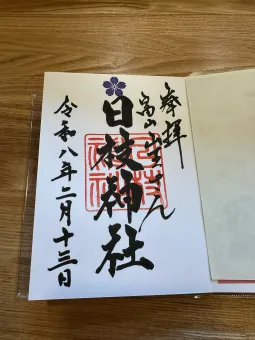 奉拝
富山山王さん
日枝神社
令和八年二月十三日